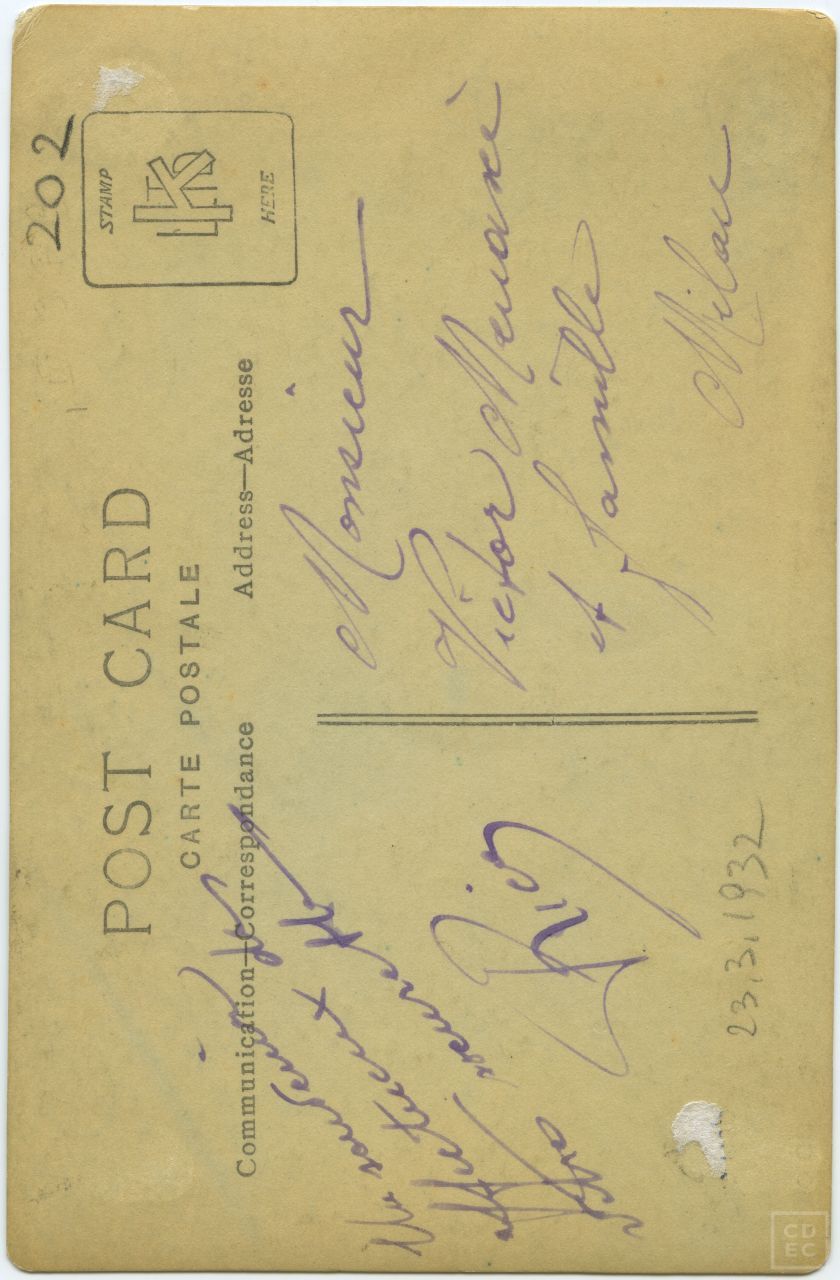 POST CARD
CARTE POSTALE
Communication—Correspondance
Address—Adresse
202
STAMP
HERE
Un souvenir
affectueux
votre
23.3.1932
Monsieur
Victor Menasè
et famille
Milan
CD
EC